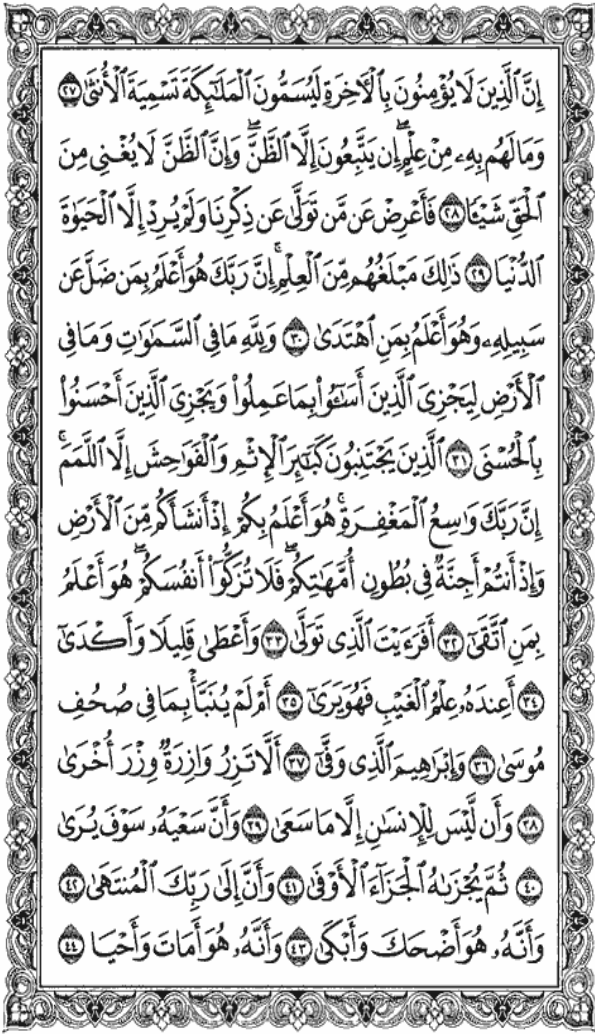 إِنَّ ٱلَّذِينَ لَا يُؤْمِنُونَ بِٱلْأَخِرَةِ لَيُسَمُّونَ ٱلْمَلَٰٓئِكَةَ تَسْمِيَةَ ٱلْأُنثَىٰ ٢٧
وَمَا لَهُم بِهِۦ مِنْ عِلْمٍ ۖ إِن يَتَّبِعُونَ إِلَّا ٱلظَّنَّ ۖ وَإِنَّ ٱلظَّنَّ لَا يُغْنِى مِنَ
ٱلْحَقِّ شَيْـًٔا ٢٨ فَأَعْرِضْ عَن مَّن تَوَلَّىٰ عَن ذِكْرِنَا وَلَمْ يُرِدْ إِلَّا ٱلْحَيَوٰةَ
ٱلدُّنْيَا ٢٩ ذَٰلِكَ مَبْلَغُهُم مِّنَ ٱلْعِلْمِ ۚ إِنَّ رَبَّكَ هُوَ أَعْلَمُ بِمَن ضَلَّ عَن
سَبِيلِهِۦ وَهُوَ أَعْلَمُ بِمَنِ ٱهْتَدَىٰ ٣٠ وَلِلَّهِ مَا فِى ٱلسَّمَٰوَٰتِ وَمَا فِى
ٱلْأَرْضِ لِيَجْزِىَ ٱلَّذِينَ أَسَٰٓـُٔوا۟ بِمَا عَمِلُوا۟ وَيَجْزِىَ ٱلَّذِينَ أَحْسَنُوا۟
بِٱلْحُسْنَى ٣١ ٱلَّذِينَ يَجْتَنِبُونَ كَبَٰٓئِرَ ٱلْإِثْمِ وَٱلْفَوَٰحِشَ إِلَّا ٱللَّمَمَ ۚ
إِنَّ رَبَّكَ وَٰسِعُ ٱلْمَغْفِرَةِ ۚ هُوَ أَعْلَمُ بِكُمْ إِذْ أَنشَأَكُم مِّنَ ٱلْأَرْضِ
وَإِذْ أَنتُمْ أَجِنَّةٌ فِى بُطُونِ أُمَّهَٰتِكُمْ ۖ فَلَا تُزَكُّوٓا۟ أَنفُسَكُمْ ۖ هُوَ أَعْلَمُ
بِمَنِ ٱتَّقَىٰٓ ٣٢ أَفَرَءَيْتَ ٱلَّذِى تَوَلَّىٰ ٣٣ وَأَعْطَىٰ قَلِيلًا وَأَكْدَىٰٓ
٣٤ أَعِندَهُۥ عِلْمُ ٱلْغَيْبِ فَهُوَ يَرَىٰٓ ٣٥ أَمْ لَمْ يُنَبَّأْ بِمَا فِى صُحُفِ
مُوسَىٰ ٣٦ وَإِبْرَٰهِيمَ ٱلَّذِى وَفَّىٰٓ ٣٧ أَلَّا تَزِرُ وَازِرَةٌ وِزْرَ أُخْرَىٰ
٣٨ وَأَن لَّيْسَ لِلْإِنسَٰنِ إِلَّا مَا سَعَىٰ ٣٩ وَأَنَّ سَعْيَهُۥ سَوْفَ يُرَىٰ
٤٠ ثُمَّ يُجْزَىٰهُ ٱلْجَزَآءَ ٱلْأَوْفَىٰ ٤١ وَأَنَّ إِلَىٰ رَبِّكَ ٱلْمُنتَهَىٰ ٤٢
وَأَنَّهُۥ هُوَ أَضْحَكَ وَأَبْكَىٰ ٤٣ وَأَنَّهُۥ هُوَ أَمَاتَ وَأَحْيَا ٤٤